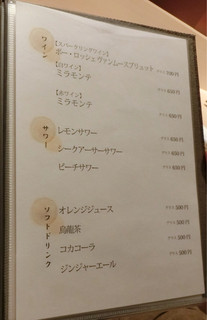 ワイン
【スパークリングワイン】
ポー・ロッシェ ヴァンムースブリュット グラス 700円
【白ワイン】
ミラモンテ グラス
【赤ワイン】
ミラモンテ グラス
サワー
レモンサワー グラス
シークアーサーサワー グラス
ピーチサワー グラス
ソフトドリンク
オレンジジュース グラス 300円
烏龍茶 グラス 300円
コカコーラ グラス 300円
ジンジャーエール グラス 300円